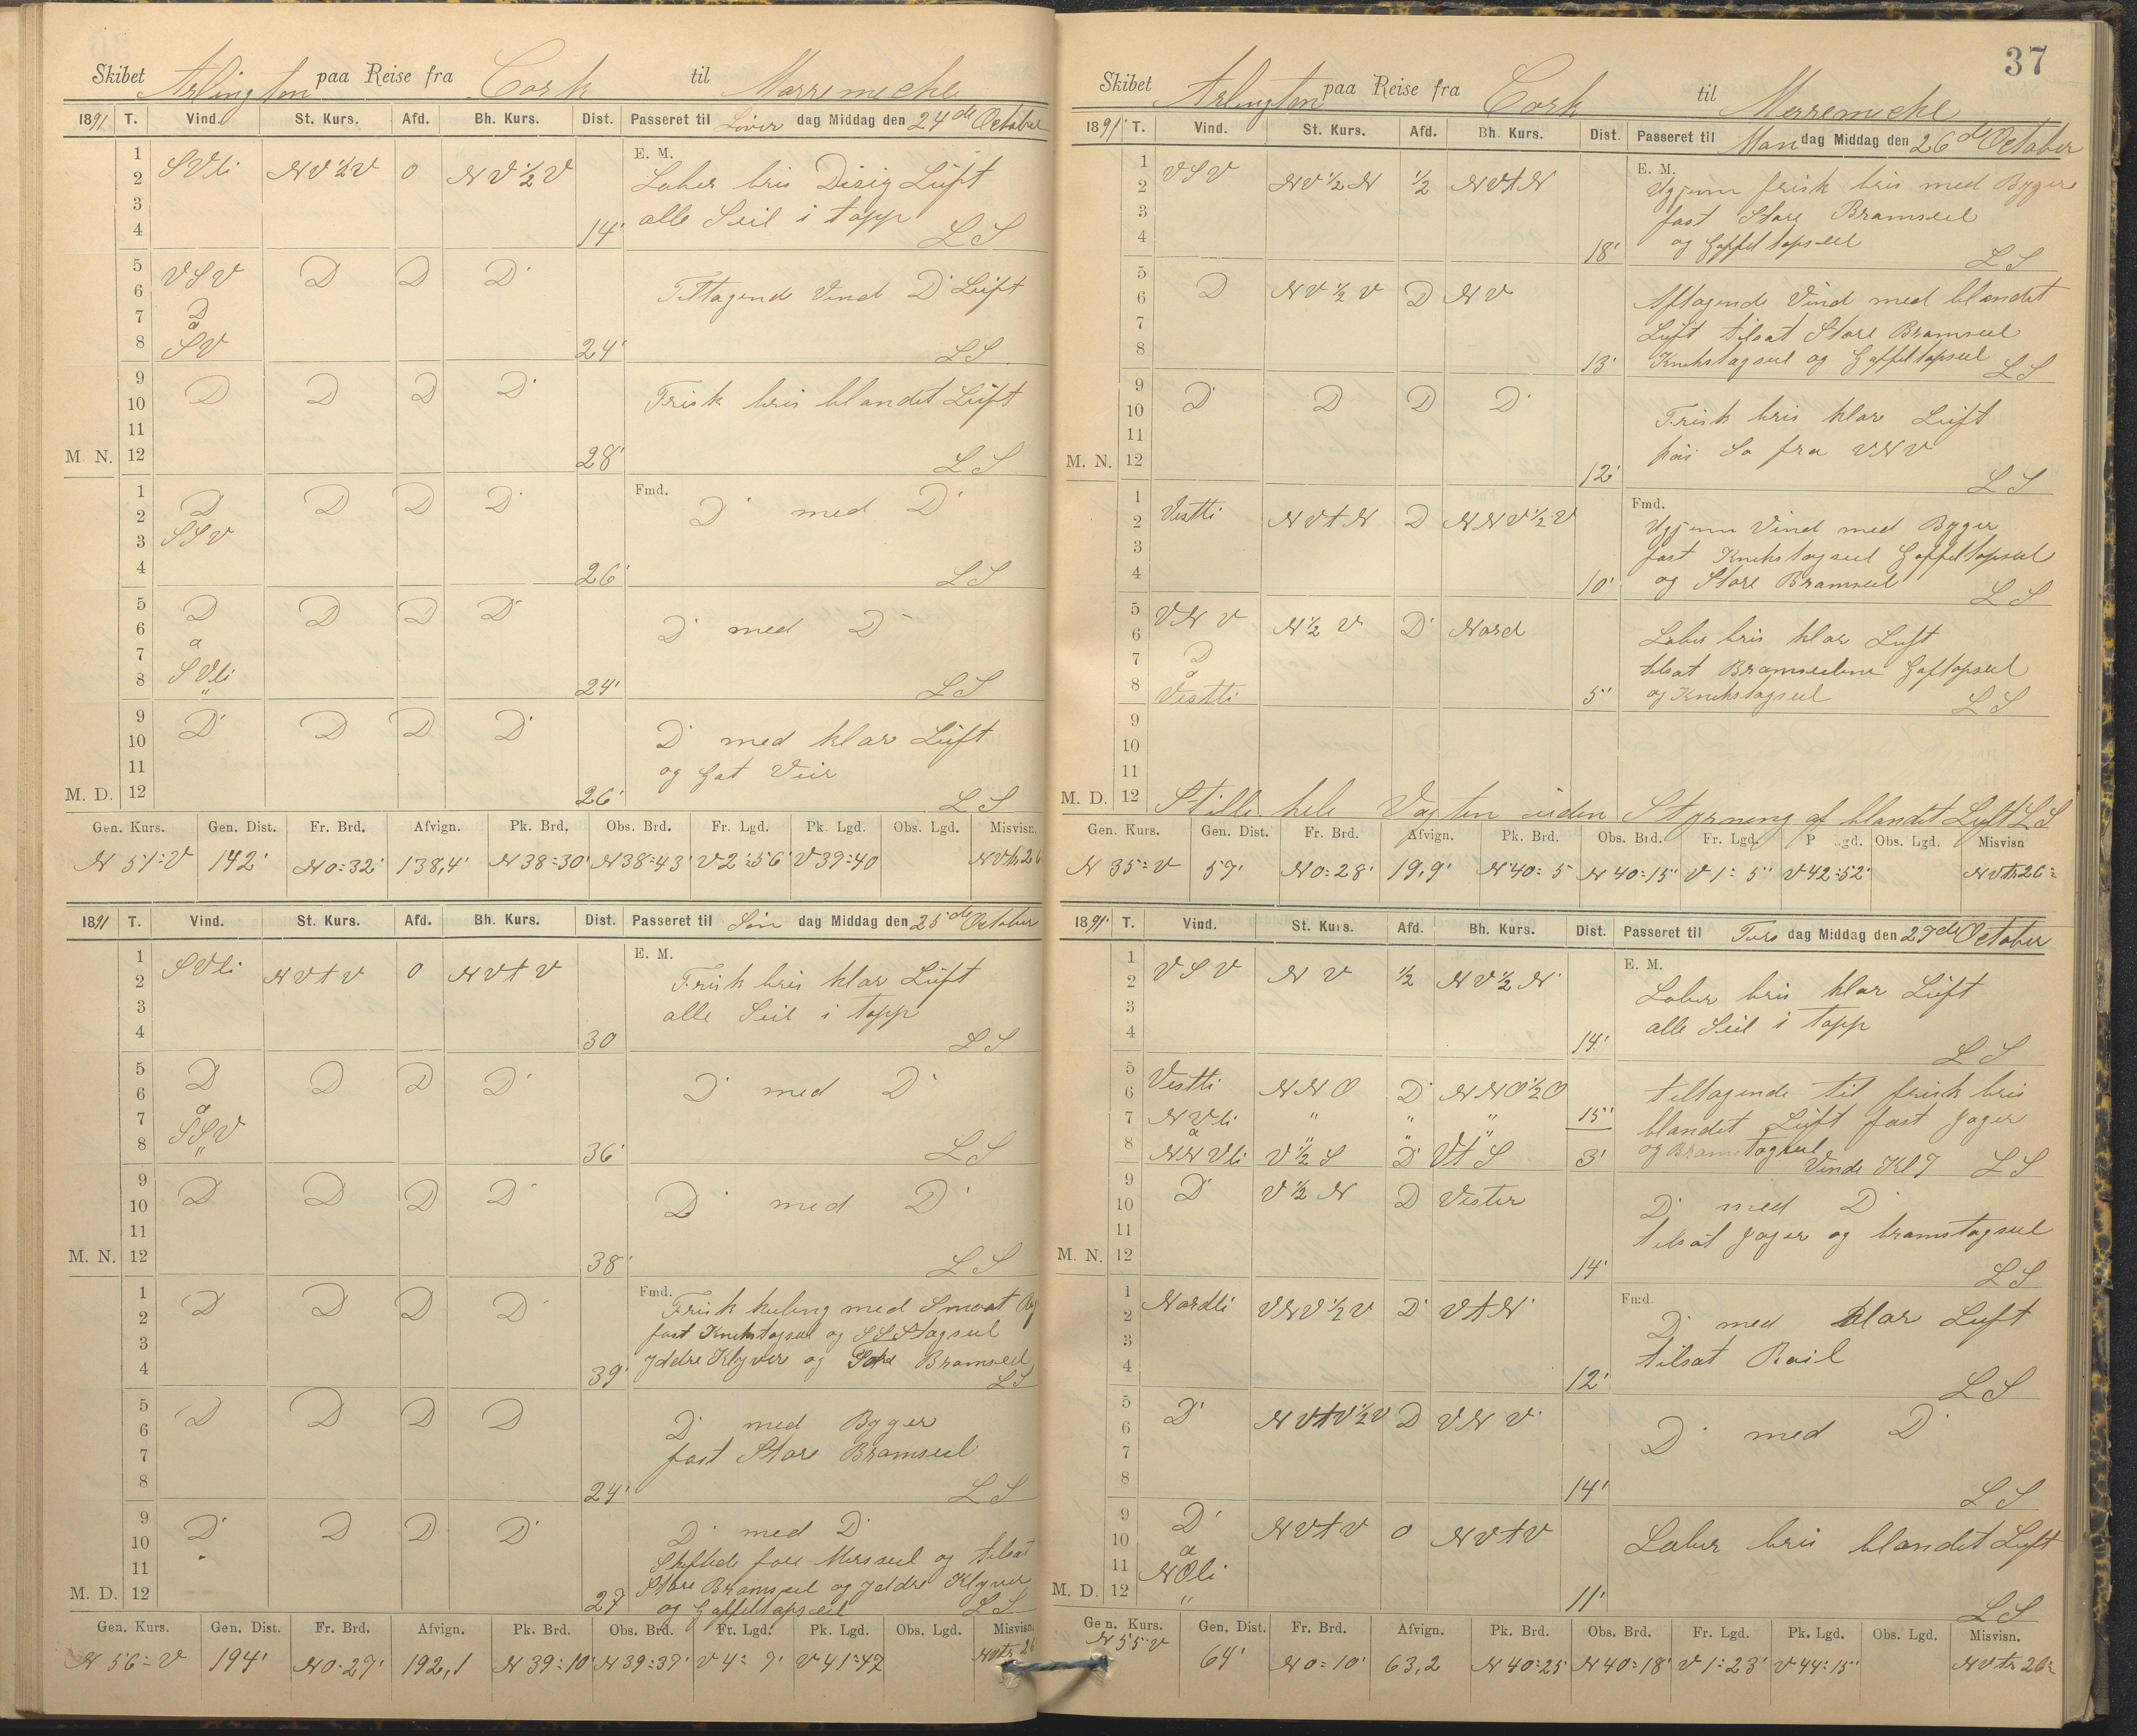 Skibet Arlington paa Reise fra Cork til Merremeche
1891 T. Vind. St. Kurs. Afd. Bh. Kurs. Dist. Passeret til Löver dag Middag den 24de October
E. M.
1 2 3 4 SVli NV½V 0 NV½V 14' Laber bris Disig Luft
alle Seil i topp LS
5 6 7 8 VSV D D D Tiltagend Vind D Luft
D a SV 24' LS
9 10 11 M. N. 12 D D D D 28' Frisk bris blandet Luft
LS
Fmd.
1 2 3 4 D SSV D D D 26' D med D
LS
5 6 7 8 D a SVli D D D 24' D med D
LS
9 10 11 M. D. 12 D D D D 26' D med klar Luft
og Got Veir LS
Gen. Kurs. Gen. Dist. Fr. Brd. Afvign. Pk. Brd. Obs. Brd. Fr. Lgd. Pk. Lgd. Obs. Lgd. Misvisn.
N 51=V 142' N 0=32' 138,4' N 38=30' N 38=43' V 2=56' V 39=40
1891 T. Vind. St. Kurs. Afd. Bh. Kurs. Dist. Passeret til Søn dag Middag den 25de October
E. M.
1 2 3 4 SVli NVtV 0 NVtV 30 Frisk bris klar Luft
alle Seil i topp LS
5 6 7 8 D a SSV D D D 36' D med D
LS
9 10 11 M. N. 12 D D D D 38' D med D
LS
Fmd.
1 2 3 4 D D D D 39' Frisk kuling med Smaat
fast Knekstagseil og SSStagseil
Yddre Klyver og Bramseil
LS
5 6 7 8 D D D D 24' D med Byger
fast Store Bramseil
LS
9 10 11 M. D. 12 D D D D 27 D med D
Skiftede fore Mersseil og tilsat
Store Bramseil og Yddre Klyver
og Gaffeltopseil LS
Gen. Kurs. Gen. Dist. Fr. Brd. Afvign. Pk. Brd. Obs. Brd. Fr. Lgd. Pk. Lgd. Obs. Lgd. Misvisn.
N 56=V 194' N 0=27' 192,1 N 39=10' N 39=37' V 4=9' V 41=47
37
Skibet Arlington paa Reise fra Cork til Merremeche
1891 T. Vind. St. Kurs. Afd. Bh. Kurs. Dist. Passeret til Man dag Middag den 26de October
E. M.
1 2 3 4 VSV NV½N ½ NVtN 18' Ujjenn frisk bris med Byger
fast Store Bramseil
og Gaffeltopseil LS
5 6 7 8 D NV½V D NV 13' Aftagende Vind med blandet
Luft tilsat Store Bramseil
Knekstagseil og Gaffeltopseil LS
9 10 11 M. N. 12 D D D D 12' Frisk bris klar Luft
Sø fra VNV
LS
Fmd.
1 2 3 4 Vestli NVtN D NNV½V 10' Ujjenn Vind med Byger
fast Knekstagseil Gaffeltopseil
og Store Bramseil LS
5 6 7 8 VNV D a Vestli N½V D Nord 5' Laber bris klar Luft
tilsat Bramseilene Gaftopseil
og Knekstagseil LS
9 10 11
M. D. 12 Stille hele Vagten uden Styrning af blandet Luft LS
Gen. Kurs. Gen. Dist. Fr. Brd. Afvign. Pk. Brd. Obs. Brd. Fr. Lgd. P gd. Obs. Lgd. Misvisn
N 35=V 57' N 0=28' 19,9' N 40=5 N 40=15' V 1=5' V 42=52' NVtr 26=
1891 T. Vind. St. Kurs. Afd. Bh. Kurs. Dist. Passeret til Tirs dag Middag den 27de October
E. M.
1 2 3 4 VSV NV ½ NV½N 14' Laber bris klar Luft
alle Seil i topp
LS
5 6 Vestli NNO D NNO½O tiltagende til frisk bris
7 NVli a " " " 15' blandet Luft fast Jager
8 NNVli V½S D VtS 3' og Bramstagseil
Vende Kl 7 LS
9 10 11 M. N. 12 D V½N D Vester 14' D med D
tilsat Jager og bramstagseil
LS
Fmd.
1 2 3 4 Nordli VNV½V D VtN 12' D med klar Luft
tilsat Roil
LS
5 6 7 8 D NVtV½V D VNV 14' D med D
LS
9 10 11 M. D. 12 D a NOli NVtV 0 NVtV 11' Laber bris blandet Luft
LS
Gen. Kurs. Gen. Dist. Fr. Brd. Afvign. Pk. Brd. Obs. Brd. Fr. Lgd. Pk. Lgd. Obs. Lgd. Misvisn.
N 55=V 64' N 0=10' 63,2 N 40=25' N 40=18' V 1=23' V 44=15' NVtr 26=